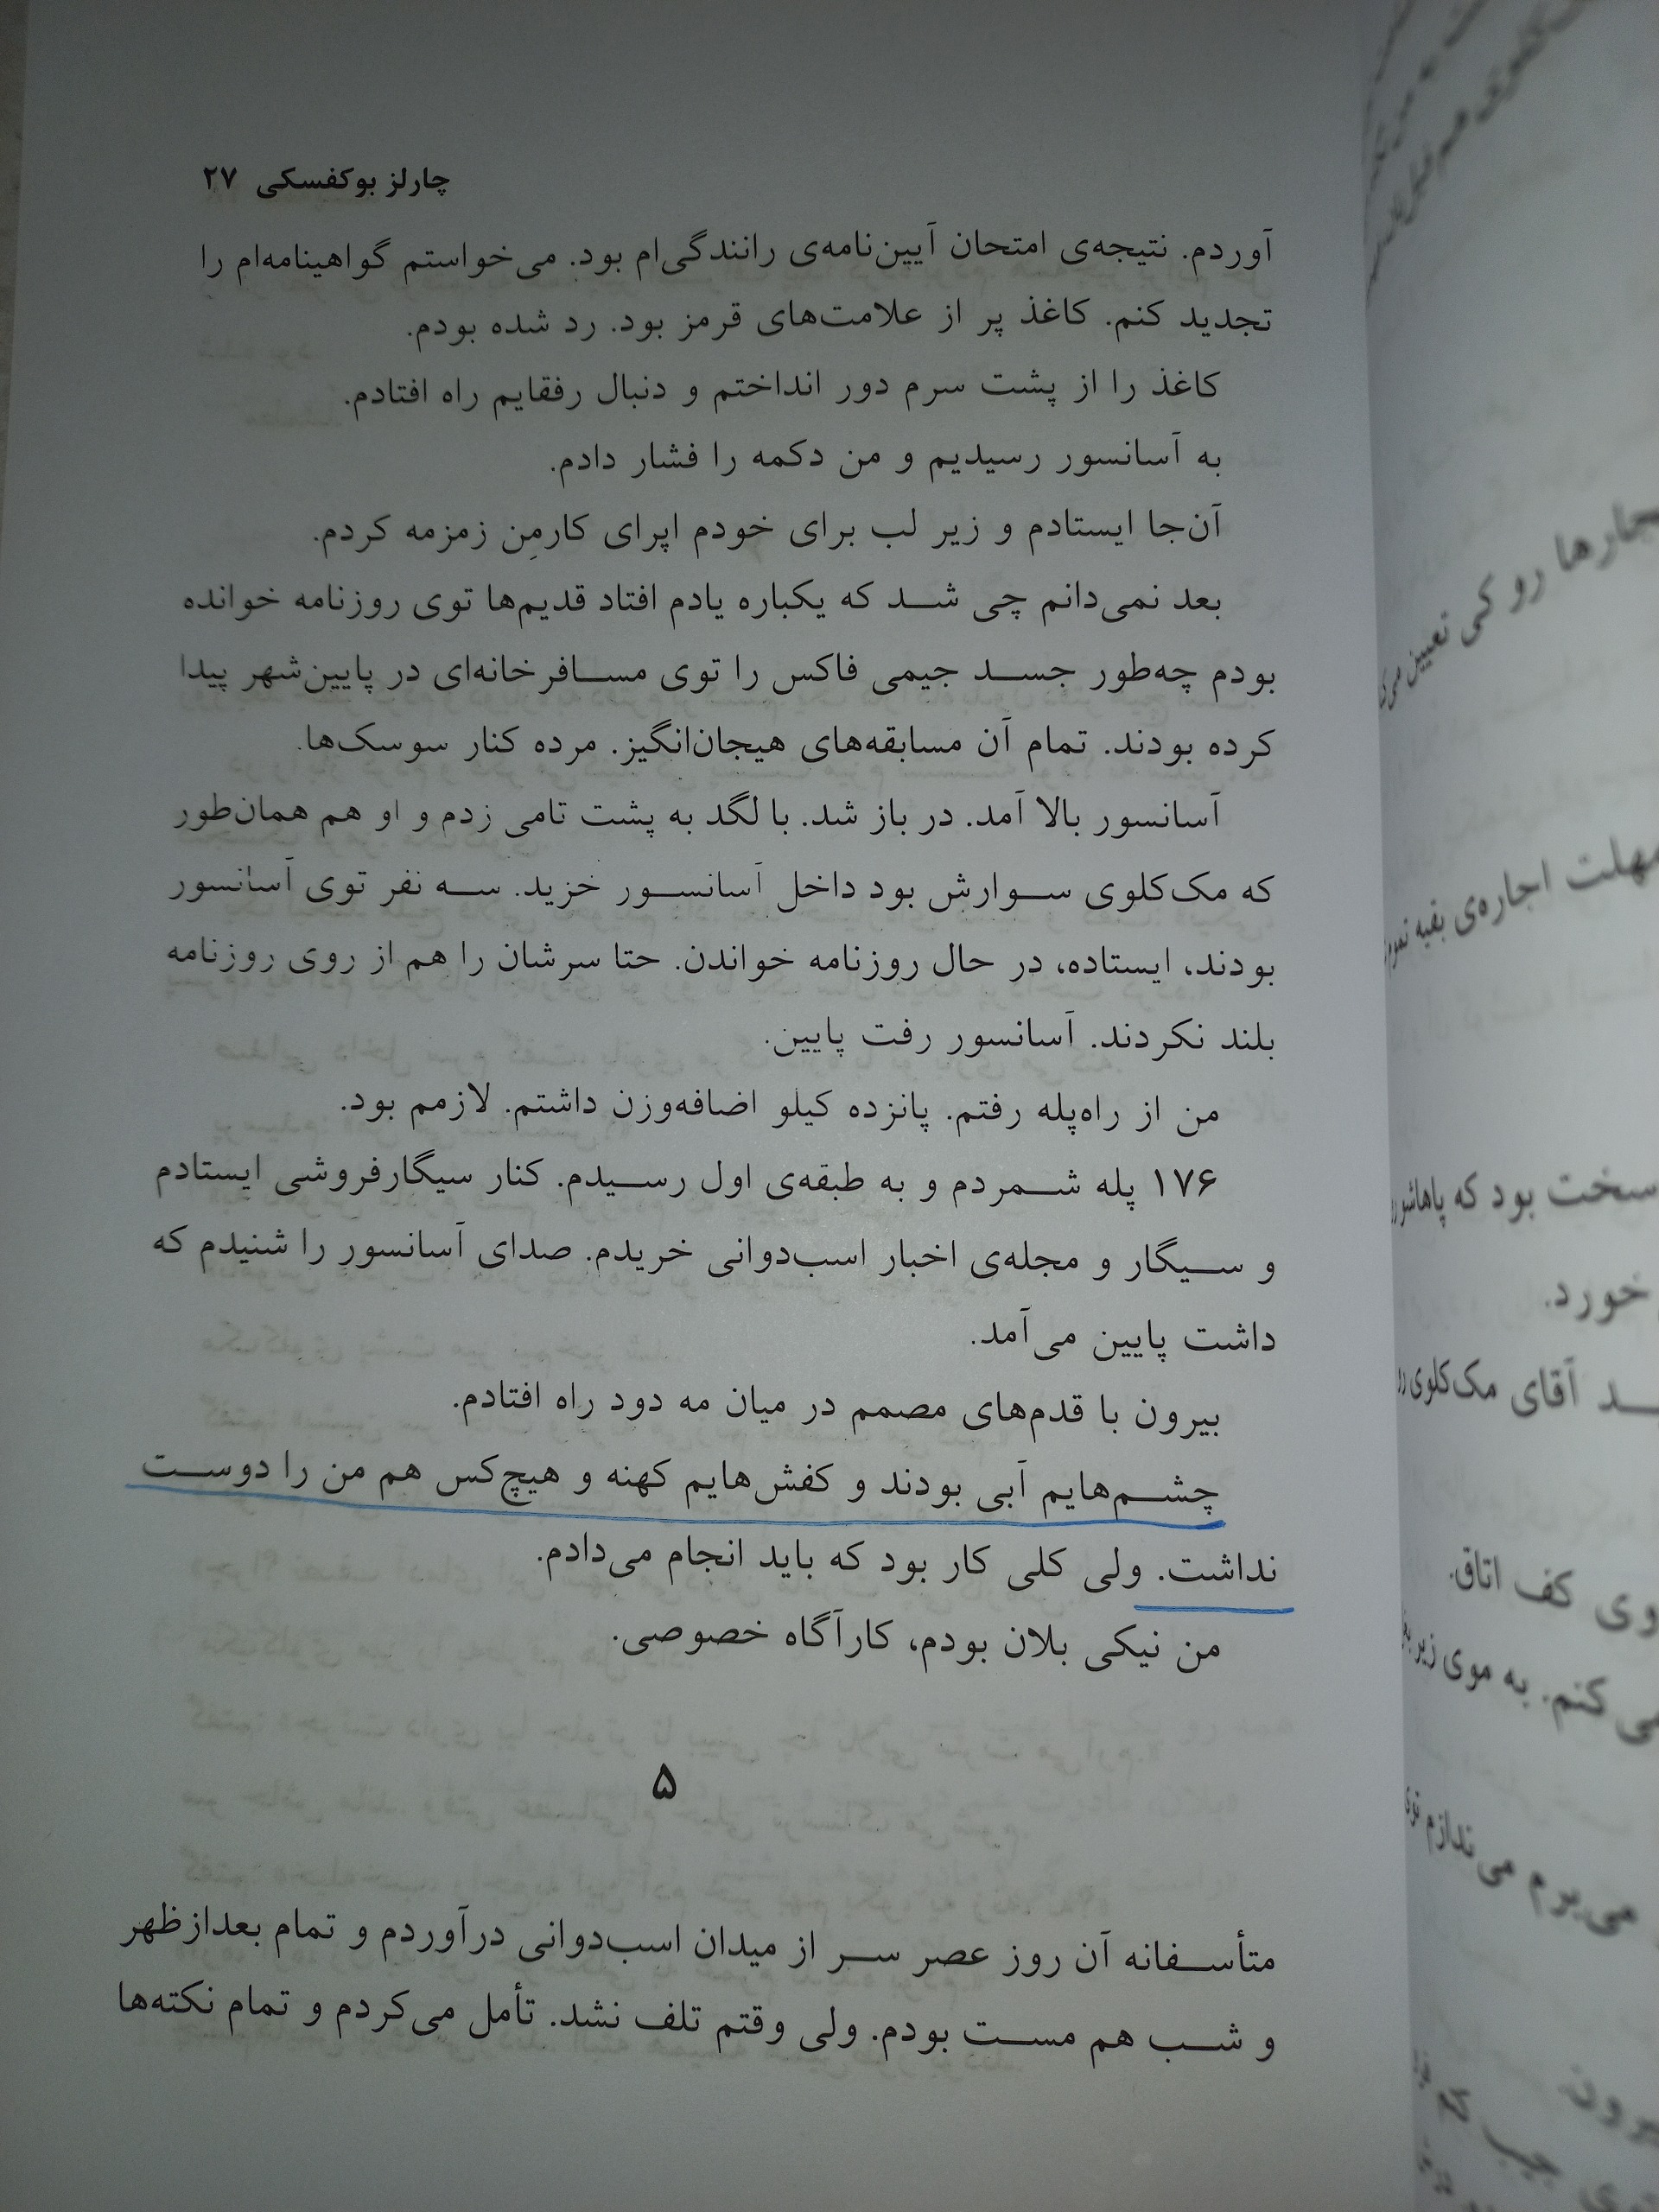 چارلز بوکفسکی ۲۷
آوردم. نتیجه‌ی امتحان آیین‌نامه‌ی رانندگی‌ام بود. می‌خواستم گواهینامه‌ام را
تجدید کنم. کاغذ پر از علامت‌های قرمز بود. رد شده بودم.
کاغذ را از پشت سرم دور انداختم و دنبال رفقایم راه افتادم.
به آسانسور رسیدیم و من دکمه را فشار دادم.
آن‌جا ایستادم و زیر لب برای خودم اپرای کارمِن زمزمه کردم.
بعد نمی‌دانم چی شد که یکباره یادم افتاد قدیم‌ها توی روزنامه خوانده
بودم چه‌طور جسد جیمی فاکس را توی مسافرخانه‌ای در پایین‌شهر پیدا
کرده بودند. تمام آن مسابقه‌های هیجان‌انگیز. مرده کنار سوسک‌ها.
آسانسور بالا آمد. در باز شد. با لگد به پشت تامی زدم و او هم همان‌طور
که مک‌کلوی سوارش بود داخل آسانسور خزید. سه نفر توی آسانسور
بودند، ایستاده، در حال روزنامه خواندن. حتا سرشان را هم از روی روزنامه
بلند نکردند. آسانسور رفت پایین.
من از راه‌پله رفتم. پانزده کیلو اضافه‌وزن داشتم. لازمم بود.
۱۷۶ پله شمردم و به طبقه‌ی اول رسیدم. کنار سیگارفروشی ایستادم
و سیگار و مجله‌ی اخبار اسب‌دوانی خریدم. صدای آسانسور را شنیدم که
داشت پایین می‌آمد.
بیرون با قدم‌های مصمم در میان مه دود راه افتادم.
چشم‌هایم آبی بودند و کفش‌هایم کهنه و هیچ‌کس هم من را دوست
نداشت. ولی کلی کار بود که باید انجام می‌دادم.
من نیکی بلان بودم، کارآگاه خصوصی.
۵
متأسفانه آن روز عصر سر از میدان اسب‌دوانی درآوردم و تمام بعدازظهر
و شب هم مست بودم. ولی وقتم تلف نشد. تأمل می‌کردم و تمام نکته‌ها
رو کی تعیین
مهلت اجاره‌ی بقیه
سخت بود که
خورد.
آقای مک‌کلوی
کف اتاق.
کنم. به موی زیر
می‌برم می‌ندازم